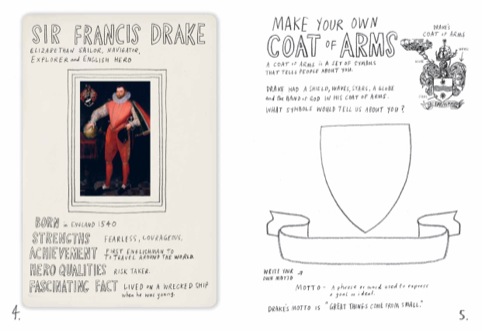 SIR FRANCIS DRAKE
ELIZABETHAN SAILOR, NAVIGATOR,
EXPLORER and ENGLISH HERO
BORN in ENGLAND 1540
STRENGTHS FEARLESS, COURAGEOUS.
ACHIEVEMENT FIRST ENGLISHMAN TO
TRAVEL AROUND THE WORLD.
HERO QUALITIES RISK TAKER.
FASCINATING FACT LIVED ON A WRECKED SHIP
when he was young.
4.
MAKE YOUR OWN
COAT OF ARMS
A COAT OF ARMS IS A SET OF SYMBOLS
THAT TELLS PEOPLE ABOUT YOU.
DRAKE'S
COAT OF ARMS
DRAKE HAD A SHIELD, WAVES, STARS, A GLOBE
and the HAND OF GOD IN HIS COAT OF ARMS.
WHAT SYMBOLS WOULD TELL US ABOUT YOU?
WRITE YOUR
OWN MOTTO
MOTTO - A phrase or word used to express
a goal or ideal.
DRAKE'S MOTTO IS "GREAT THINGS COME FROM SMALL."
5.